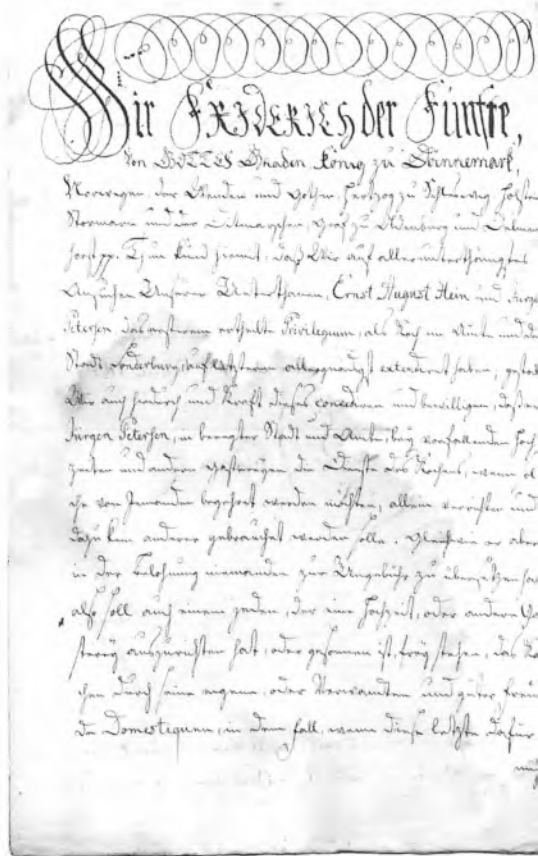 Wir FRIDERICH der Fünfte,
Von GOTTES Gnaden König zu Dännemark,
Norwegen, der Wenden und Gothen, Hertzog zu Schleswig, Holstei
Stormarn und der Ditmarschen, Graf zu Oldenburg und Delmen
horst pp. Thun kund hiemit, daß Wir auf allerunterthänigstes
Ansuchen Unserer Unterthanen, Ernst August Hein und Jürge
Petersen, das ersterem ertheilte Privilegium, als Koch im Amte und der
Stadt Sonderburg, auf letzteren allergnädigst extendiret haben; gestal
Wir auch hiedurch und Kraft dieses concediren und bewilligen, daß er
Jürgen Petersen, in beregter Stadt und Amte, bey vorfallenden Hoch
zeiten und anderen Gastereyen die Dienste des Kochens, wenn sol
che von Jemanden begehret werden möchten, allein verrichten und
dazu kein anderer gebrauchet werden solle. Gleichwie er aber
in der Belohnung niemanden zur Ungebühr zu übersetzen hat
also soll auch einem jeden, der eine Hochzeit, oder andere Ga
sterey auszurichten hat, oder gesonnen ist, frey stehen, das Ko
chen durch seine eigene, oder Verwandten und guter Freun
de Domestiquen, in dem Fall, wenn diese letzte dafür